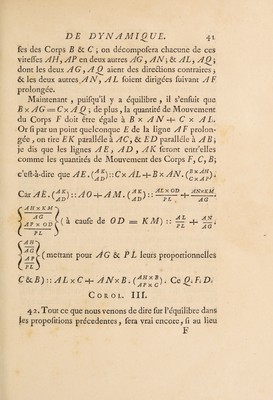 DE DYNAMIQUE. 41
ses des Corps B & C ; on décomposera chacune de ces
vîtesses AH, AP en deux autres AG, AN ; & AL, AQ ;
dont les deux AG, AQ aient des directions contraires ;
& les deux autres AN, AL soient dirigées suivant AF
prolongée.
Maintenant, puisqu'il y a équilibre, il s'ensuit que
B × AG = C × AQ ; de plus, la quantité de Mouvement
du Corps F doit être égale à B × AN + C × AL.
Or si par un point quelconque E de la ligne AF prolon-
gée, on tire EK parallèle à AC, & ED parallèle à AB ;
je dis que les lignes AE, AD, AK seront entr'elles
comme les quantités de Mouvement des Corps F, C, B ;
c'est-à-dire que AE. (AK/AD) :: C × AL + B × AN. (B×AH/C×AP).
Car AE. (AK/AD) :: AO + AM. (AK/AD) :: AL×OD/PL + AN×KM/AG.
(AH×KM/AG / AP×OD/PL) (à cause de OD = KM) :: AL/PL + AN/AG.
(AH/AG / AP/PL) (mettant pour AG & PL leurs proportionnelles
C & B) :: AL × C + AN × B. (AH×B/AP×C). Ce Q. F. D.
COROL. III.
42. Tout ce que nous venons de dire sur l'équilibre dans
les propositions précedentes, sera vrai encore, si au lieu
F